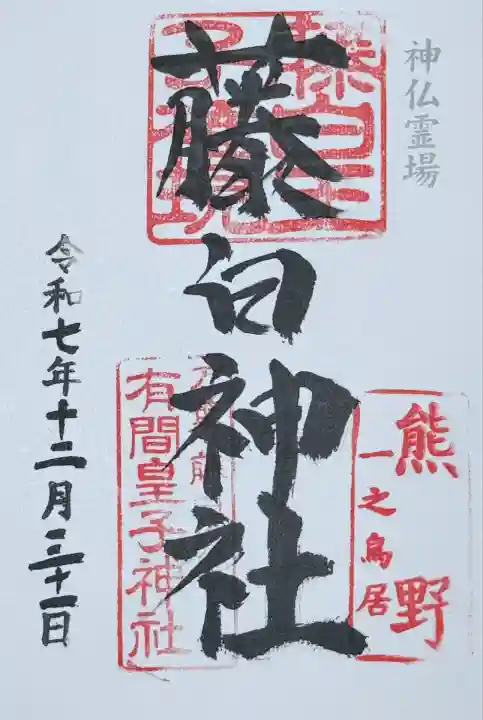 神仏霊場
熊野
一之鳥居
藤白神社
有間皇子神社
令和七年十二月三十一日